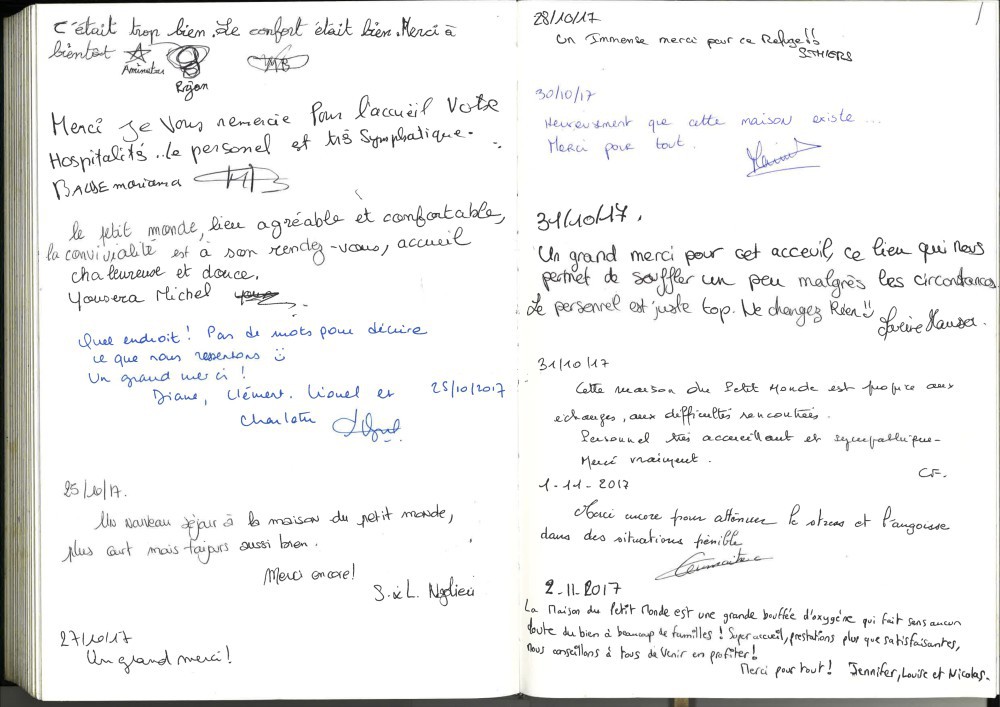 C'était trop bien. Le confort était bien. Merci à
bientot
Aminatou
Rayan
MB
Merci je Vous remercie Pour l'accueil Votre
Hospitalité.. le personel et trés Symphatique.
BALDE mariama MB
le petit monde, lieu agréable et comfortable,
la convivialité est à son rendez-vous, accueil
chaleureuse et douce.
Yousera Michel
Quel endroit ! Pas de mots pour décrire
ce que nous ressentons
Un grand merci !
Diane, Clément. Lionel et 25/10/2017
Charlotte
25/10/17.
Un nouveau séjour à la maison du petit monde,
plus court mais toujours aussi bien.
Merci encore!
S. & L.
27/10/17
Un grand merci !
28/10/17
Un Immense merci pour ce Refuge!!
S.THIERS
30/10/17
Heureusement que cette maison existe ...
Merci pour tout.
31/10/17.
Un grand merci pour cet acceuil, ce lieu qui nous
permet de souffler un peu malgrès les circonstances
Le personnel est juste top. Ne changez Rien!!
31/10/17
Cette maison du Petit Monde est propice aux
échanges, aux difficultés rencontrées.
Personnel très accueillant et sympathique-
Merci vraiment.
CF.
1-11-2017
Merci encore pour atténuer le stress et l'angoisse
dans des situations pénible
2-11-2017
La Maison du Petit Monde est une grande bouffée d'oxygène qui fait sans aucun
doute du bien à beaucoup de familles ! Super accueil, prestations plus que satisfaisantes,
nous conseillons à tous de venir en profiter!
Merci pour tout! Jennifer, Louise et Nicolas.